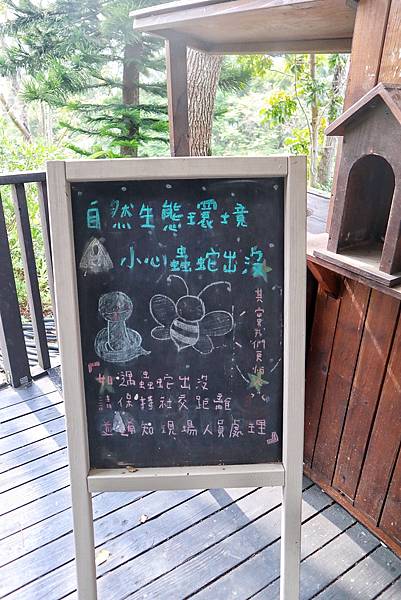 自然生態環境
小心蟲蛇出沒
其實我們更怕
如遇蟲蛇出沒
請保持社交距離
並通知現場人員處理